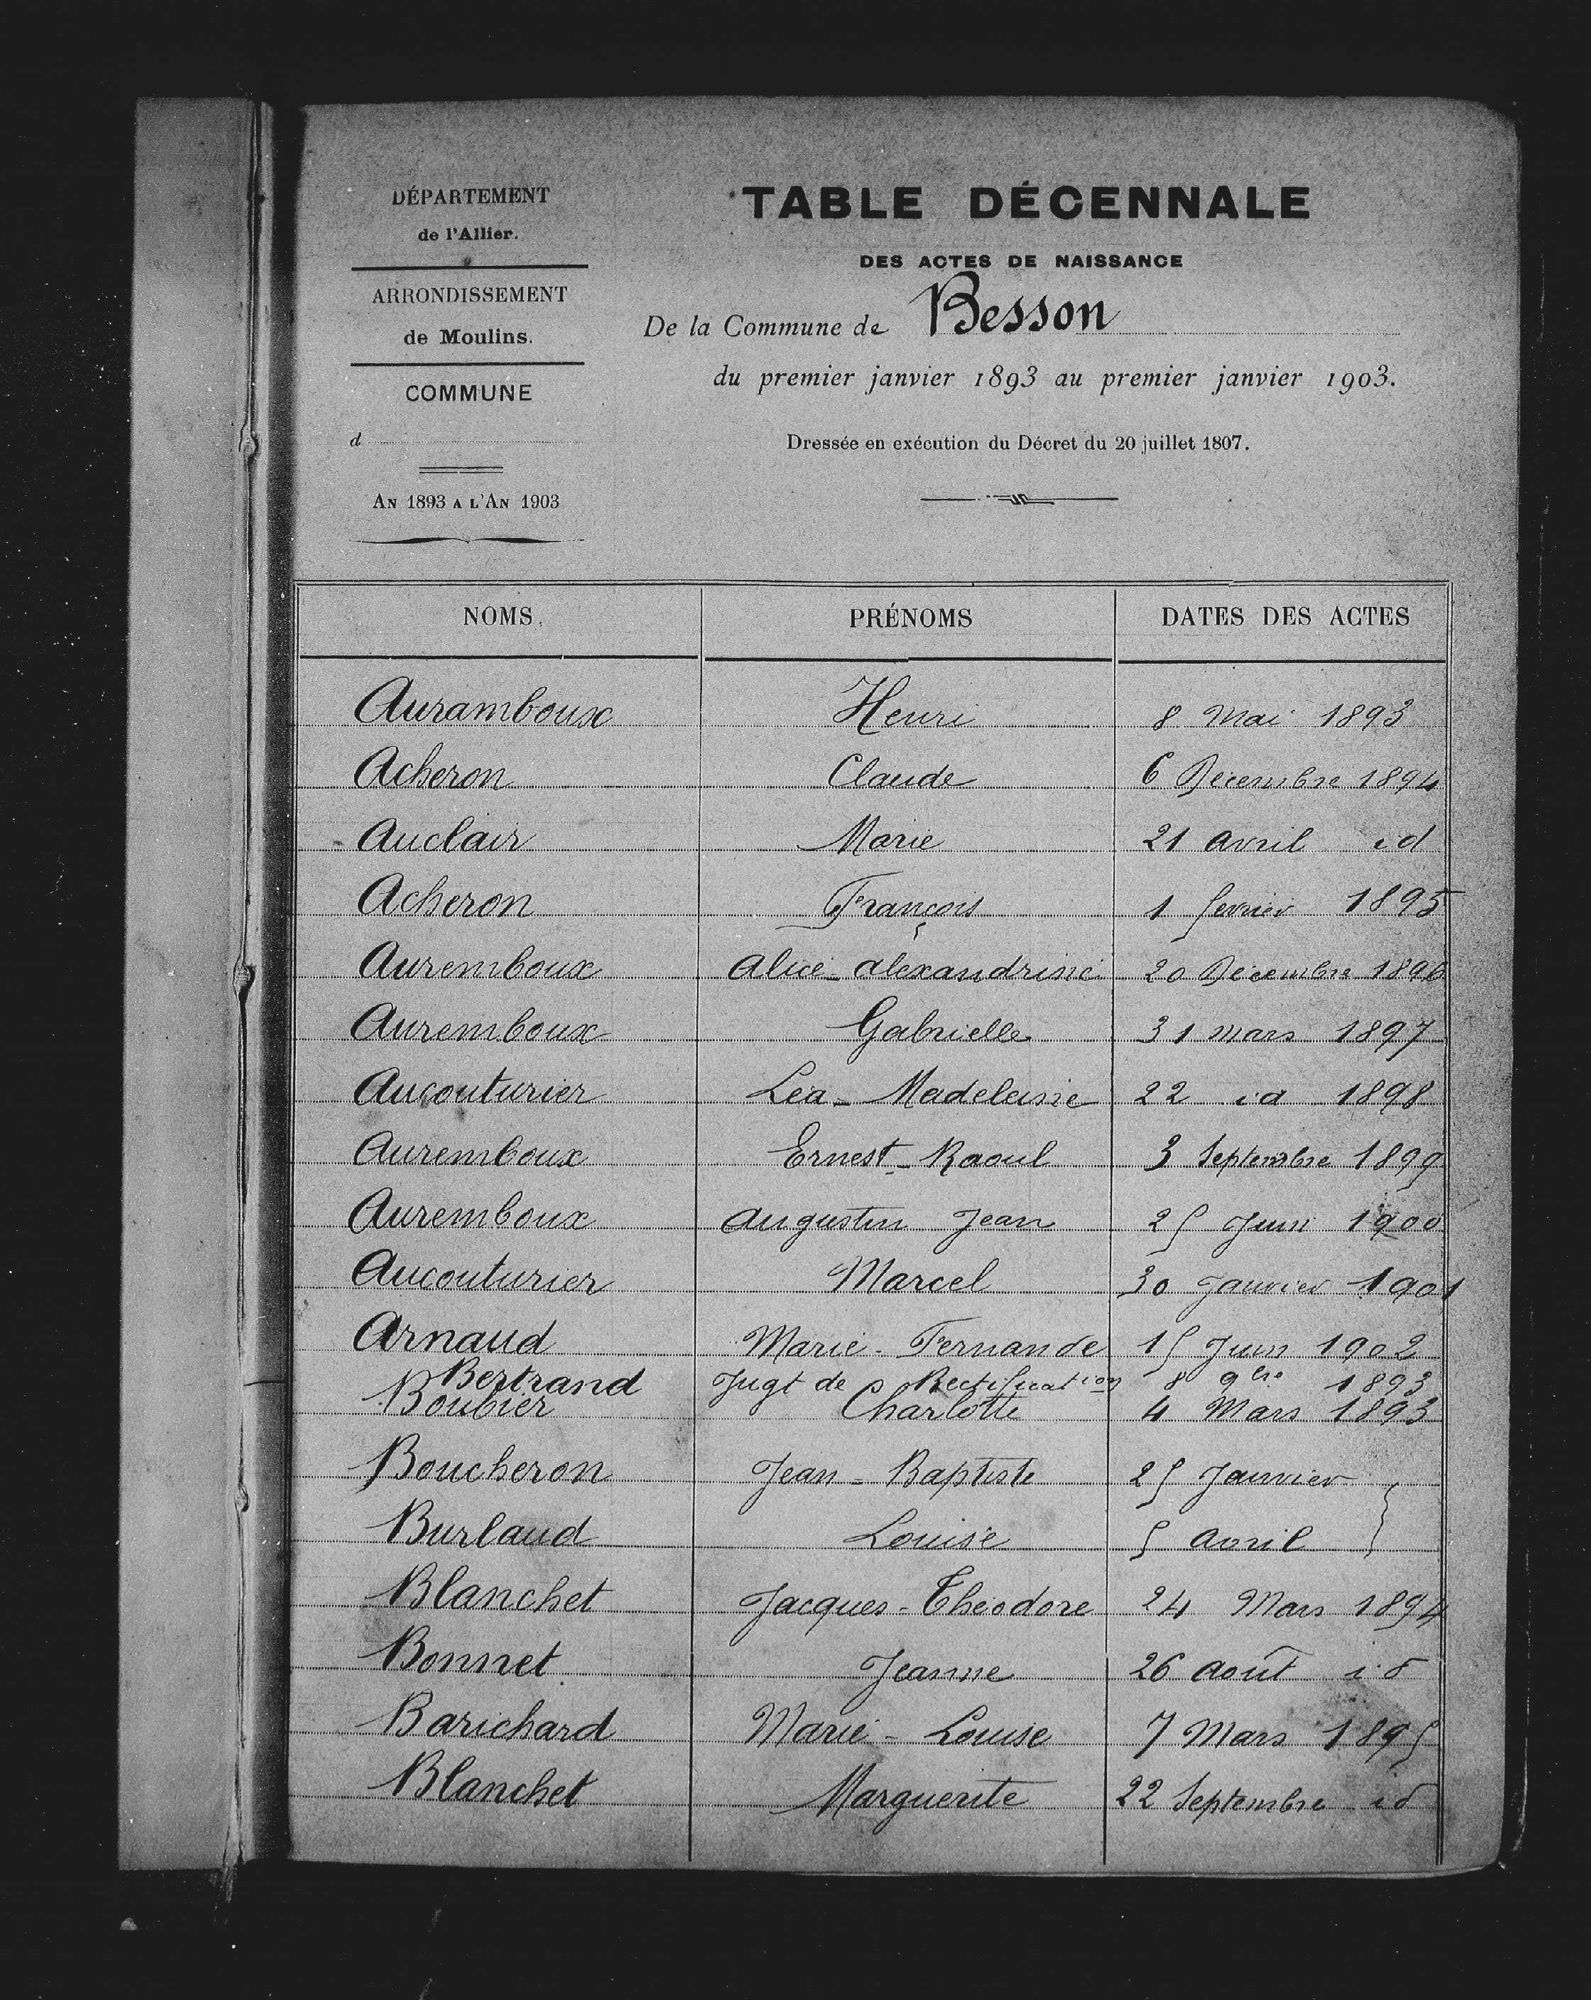 DÉPARTEMENT
de l'Allier.
ARRONDISSEMENT
de Moulins.
COMMUNE
d
AN 1893 A L'AN 1903
TABLE DÉCENNALE
DES ACTES DE NAISSANCE
De la Commune de Besson
du premier janvier 1893 au premier janvier 1903.
Dressée en exécution du Décret du 20 juillet 1807.
NOMS. PRÉNOMS DATES DES ACTES
Auramboux Henri 8 Mai 1893
Acheron Claude 6 Décembre 1894
Auclair Marie 21 avril id
Acheron François 1 février 1895
Auremboux Alice-alexandrine 20 Décembre 1896
Auremboux Gabrielle 31 mars 1897
Aucouturier Léa-Madeleine 22 id 1898
Auremboux Ernest-Raoul 3 Septembre 1899
Auremboux Augustin Jean 25 Juin 1900
Aucouturier Marcel 30 Janvier 1901
Arnaud Marie-Fernande 15 Juin 1902
Bertrand Jugt de Rectification 8 9bre 1893
Boubier Charlotte 4 Mars 1893
Boucheron Jean-Baptiste 25 Janvier
Burlaud Louise 5 avril }
Blanchet Jacques-Théodore 24 Mars 1894
Bonnet Jeanne 26 août id
Barichard Marie-Louise 7 Mars 1895
Blanchet Marguerite 22 Septembre id